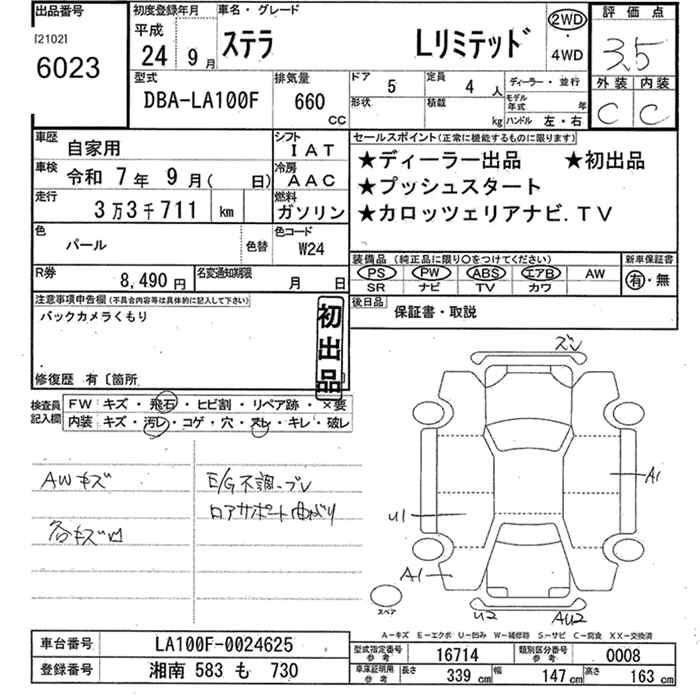 出品番号 初度登録年月 車名・グレード 評価点
[2102] 平成
6023 24年 9月 ステラ Lリミテッド 2WD・4WD 3.5
型式 排気量 ドア 5 定員 4人 ディーラー・並行 外装 内装
DBA-LA100F 660cc 形状 積載 kg モデル年式 年 C C
ハンドル 左・右
車歴 自家用 シフト IAT セールスポイント(正常に機能するものに限ります)
車検 令和 7年 9月( 日) 冷房 AAC ★ディーラー出品 ★初出品
走行 3万3千711 km 燃料 ガソリン ★プッシュスタート
★カロッツェリアナビ.TV
色 パール 色替 色コード W24
装備品(純正品に限り○をつけてください) 新車保証書
PS PW ABS エアB AW 有・無
SR ナビ TV カワ
R券 8,490円 名変通知期限 月 日
後日品 保証書・取説
注意事項申告欄(不具合内容等は具体的に記入して下さい)
バックカメラくもり
初出品
修復歴 有〔箇所
検査員記入欄 FW キズ・飛石・ヒビ割・リペア跡・×要
内装 キズ・汚レ・コゲ・穴・スレ・キレ・破レ
AWキズ E/G不調ーブレ
ロアサポート曲がり
各キズ凹
ズレ
A1
U1
A1
スペア
U2 AU2
A-キズ E-エクボ U-凹み W-補修跡 S-サビ C-腐食 XX-交換済
車台番号 LA100F-0024625 型式指定番号 参考 16714 類別区分番号 参考 0008
登録番号 湘南 583 も 730 車庫証明用 参考 長さ 339cm 幅 147cm 高さ 163cm